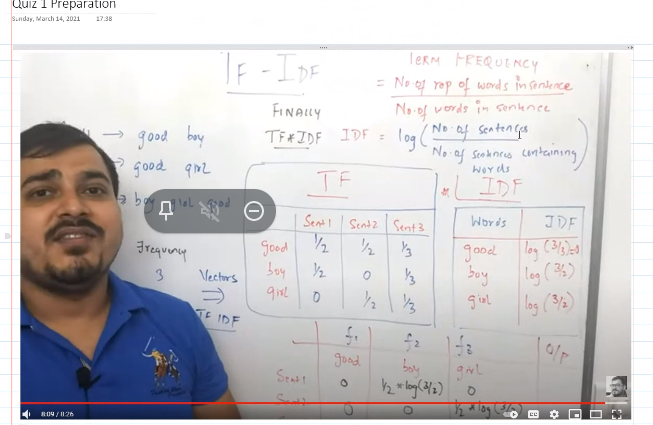 Quiz 1 Preparation
Sunday, March 14, 2021 17:38
TF - IDF
TERM FREQUENCY
= No of rep of words in sentence
No. of words in sentence
FINALLY
TF*IDF
IDF = log ( No. of sentences
No. of sentences containing
words )
→ good boy
→ good girl
→ boy girl good
Frequency
3
Vectors
⇒
TF IDF
TF
* IDF
Sent1 Sent2 Sent3
good 1/2 1/2 1/3
boy 1/2 0 1/3
girl 0 1/2 1/3
Words IDF
good log(3/3)=0
boy log(3/2)
girl log(3/2)
f1 f2 f3 O/P
good boy girl
Sent1 0 1/2 * log(3/2) 0
Sent2 0 0 1/2 * log(3/2)
8:09 / 8:26